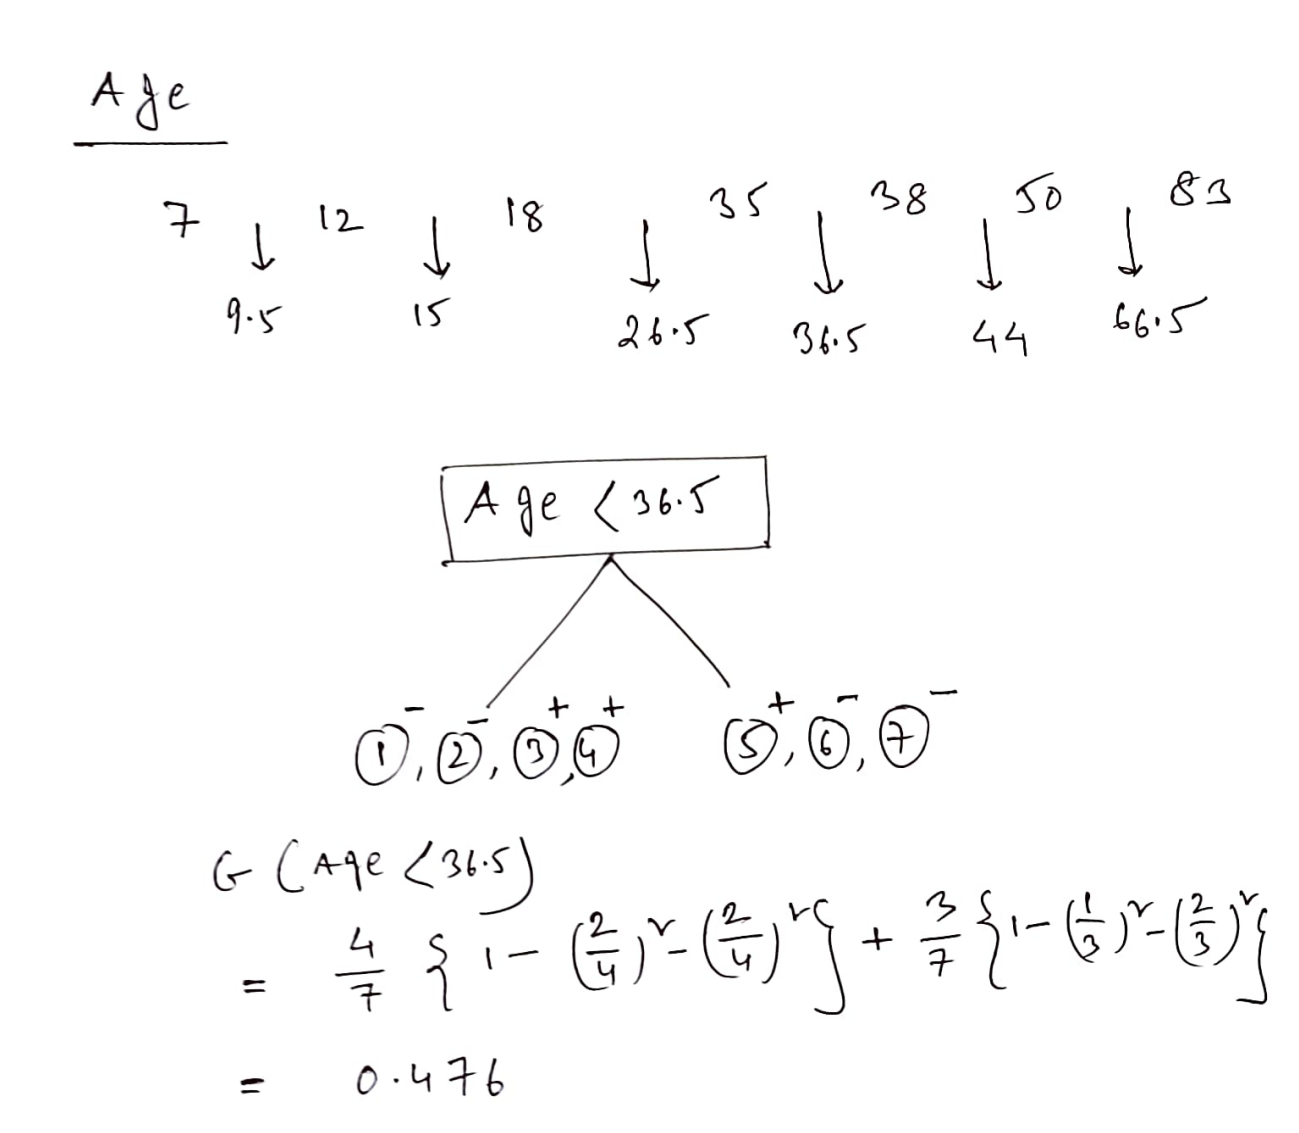 Age
7 ↓ 12 ↓ 18 ↓ 35 ↓ 38 ↓ 50 ↓ 83
9.5 15 26.5 36.5 44 66.5
Age < 36.5
①⁻, ②⁻, ③⁺, ④⁺ ⑤⁺, ⑥⁻, ⑦⁻
G (Age < 36.5)
= 4/7 { 1 - (2/4)² - (2/4)² } + 3/7 { 1 - (1/3)² - (2/3)² }
= 0.476